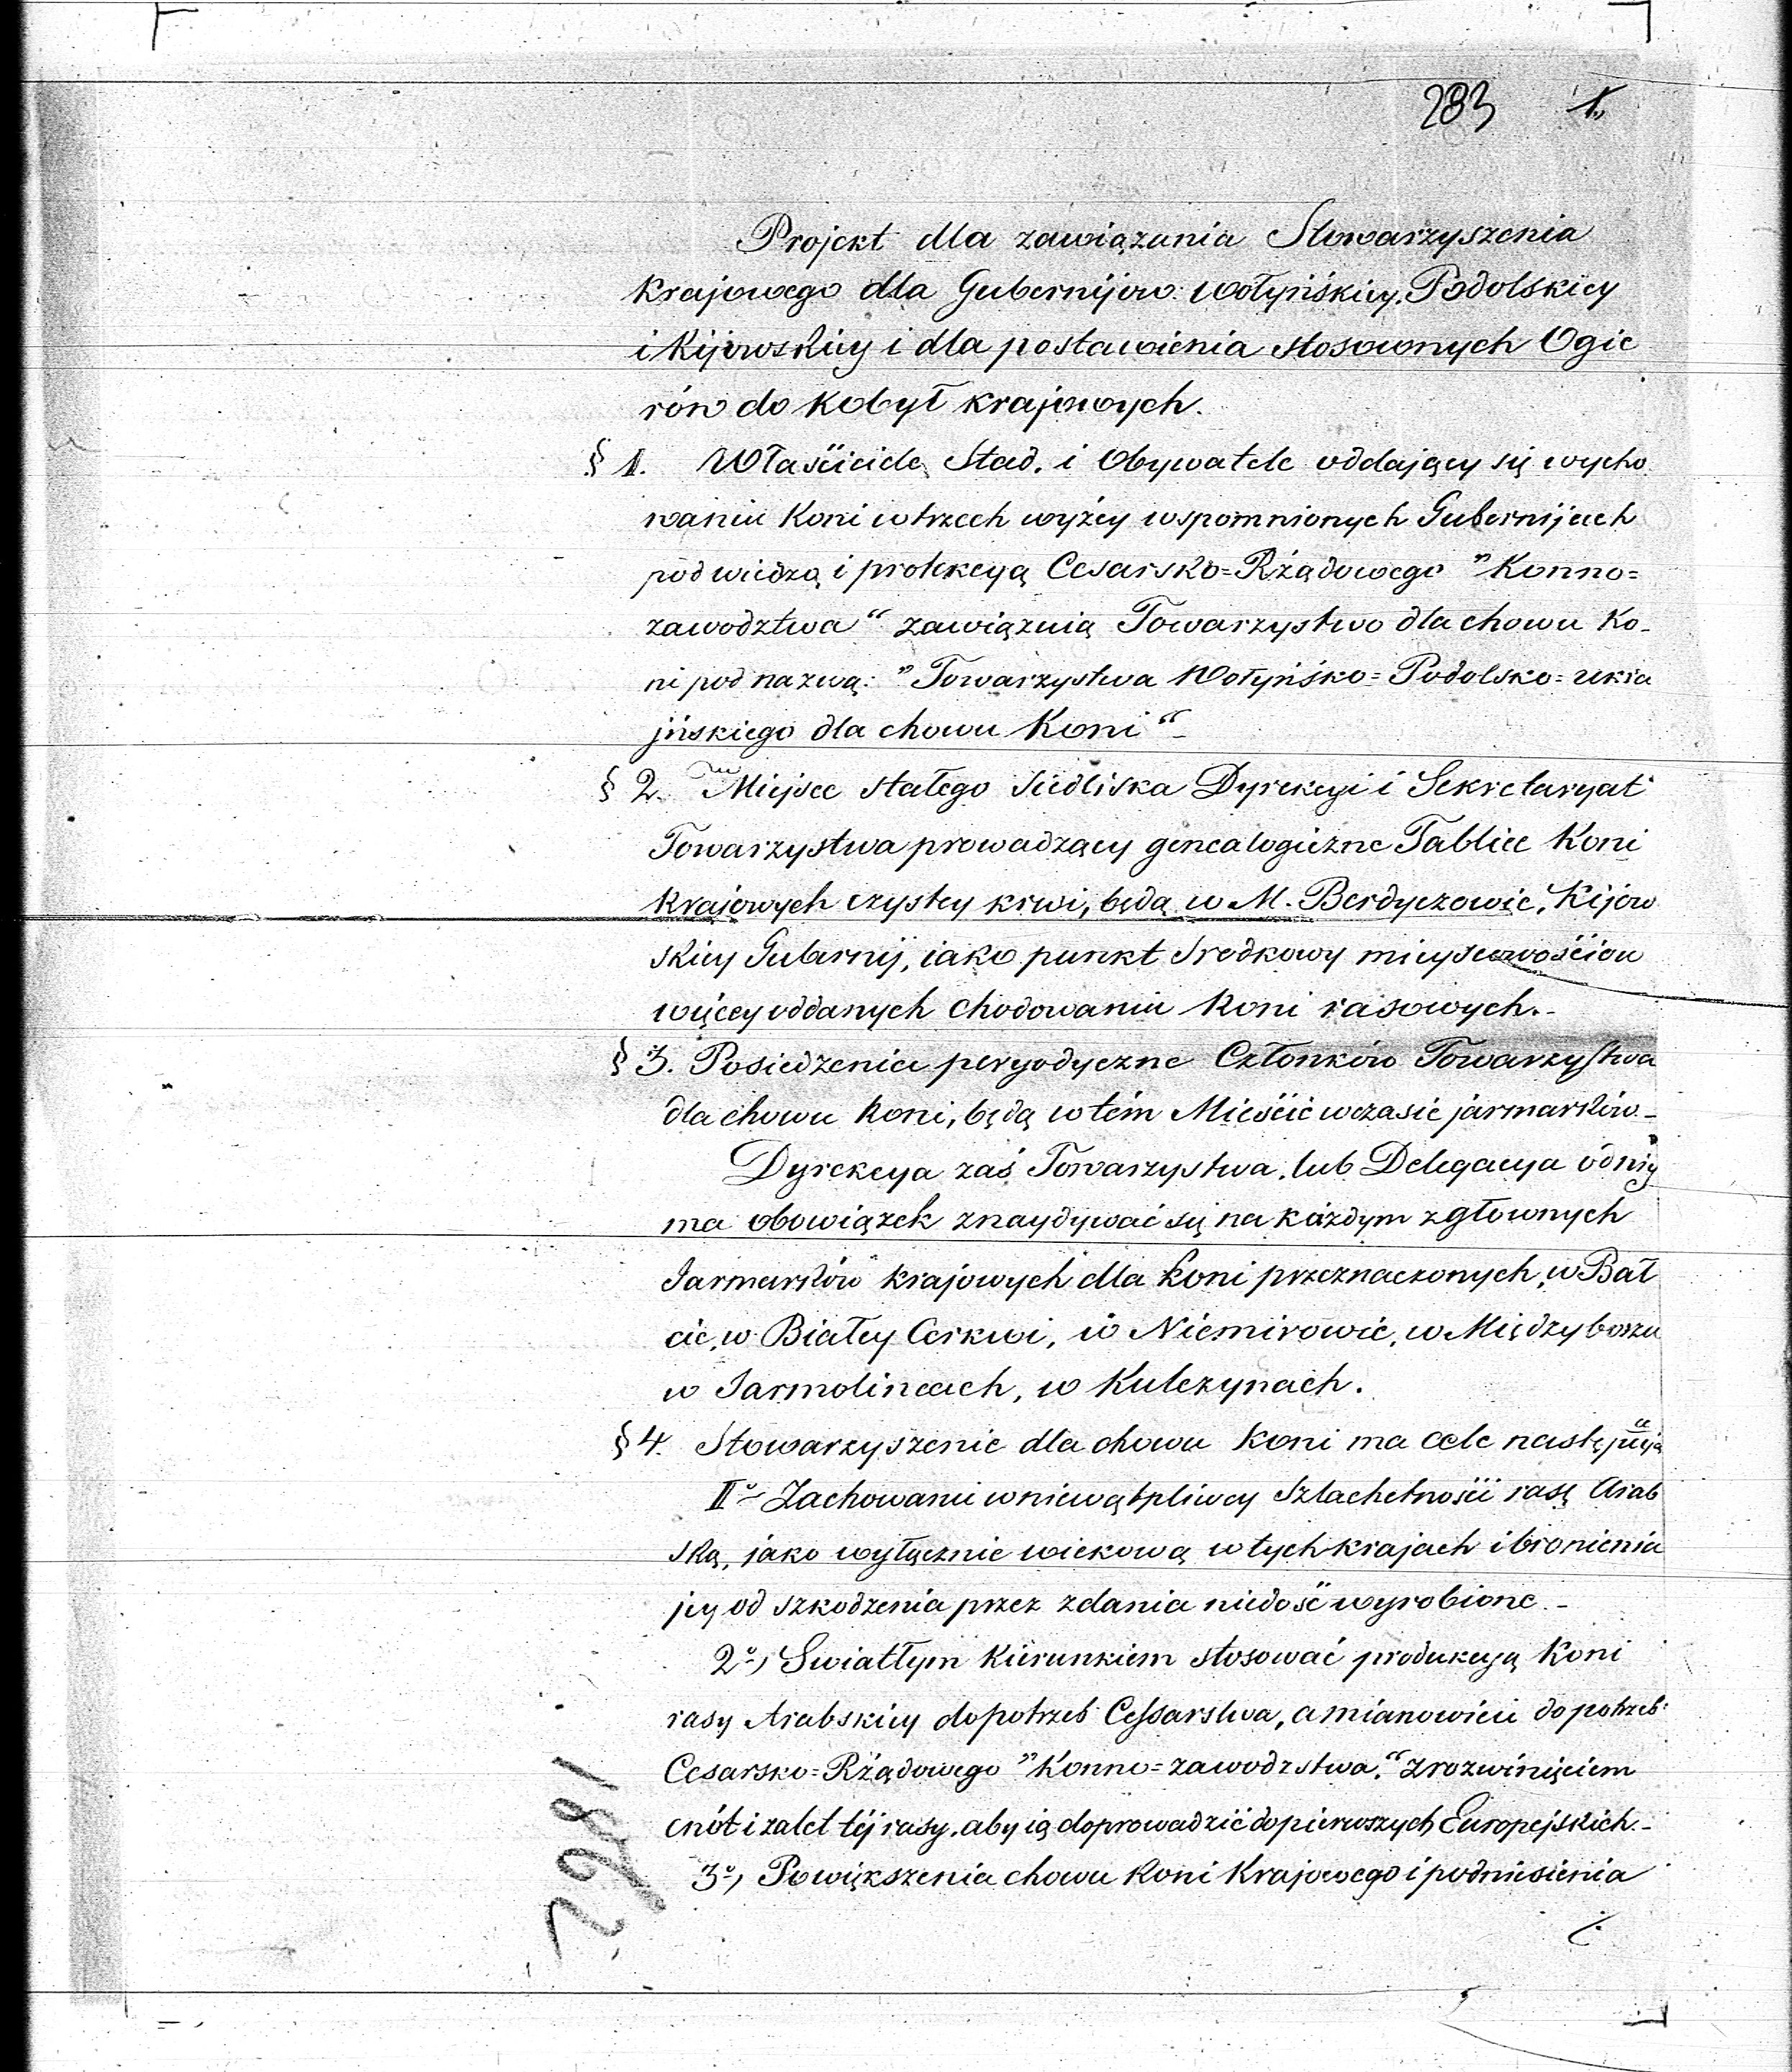 283 1.
Projekt dla zawiązania Stowarzyszenia
Krajowego dla Gubernijow: Wołyńskiey, Podolskiey
i Kijowskiey i dla postawienia stosownych Ogie
rów do Kobył krajowych.
§ 1. Właściciele Stad, i Obywatele oddający się wycho
waniu Koni w trzech wyżey wspomnionych Gubernijach
pod wiedzą i protekcyą Cesarsko=Rządowego "Konno=
zawodztwa" zawiązuią Towarzystwo dla chowu Ko-
ni pod nazwą: "Towarzystwa Wołyńsko=Podolsko=Ukra
jińskiego dla chowu Koni"-
§ 2. Miejsce stałego siedliska Dyrekcyi i Sekretaryat
Towarzystwa prowadzący genealogiczne Tablice Koni
Krajowych czystey krwi, będą w M. Berdyczowie, Kijow
skiey Gubernij, iako punkt srodkowy mieyscowościow
więcey oddanych chodowaniu Koni rasowych.-
§ 3. Posiedzenia peryodyczne Członków Towarzystwa
dla chowu Koni, będą w tém Mieście w czasie jarmarków-
Dyrekcya zaś Towarzystwa, lub Delegacya od niey
ma obowiązek znaydywać się na każdym z głownych
Jarmarków krajowych dla koni przeznaczonych, w Bał
cie, w Białey Cerkwi, w Niemirowie, w Międzybożu
w Jarmolincach, w Kulczynach.
§ 4. Stowarzyszenie dla chowu Koni ma cele następują
ce
Iº- Zachowaniu w niewątpliwey Szlachetności rasę Arab
ską, jako wyłącznie wiekową w tych krajach i bronienia
jey od szkodzenia przez zdania niedość wyrobione.-
2º-) Swiatłym Kierunkiem stosować produkcyą Koni
rasy Arabskiey do potrzeb Cessarstwa, a mianowicie do potrzeb
Cesarsko=Rządowego "Konno=zawodzstwa." z rozwinięciem
cnót i zalet téj rasy, aby ią doprowadzić do pierwszych Europejskich.-
3º-) Powiększenia chowu Koni Krajowego i podniesienia
7281